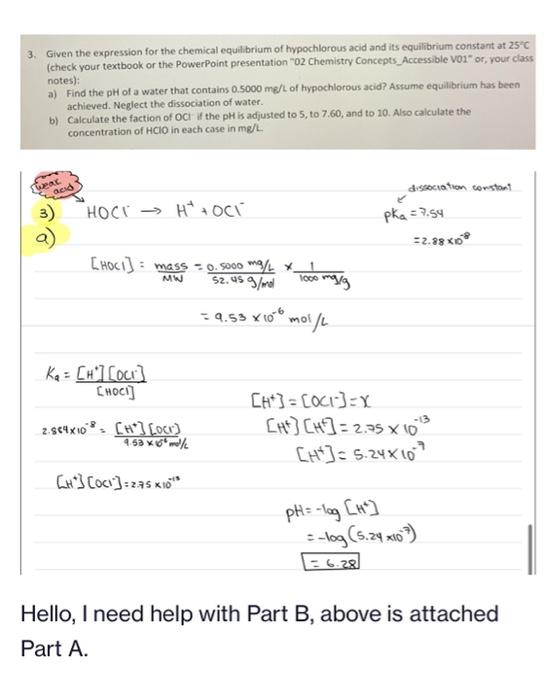 3. Given the expression for the chemical equilibrium of hypochlorous acid and its equilibrium constant at 25°C
(check your textbook or the PowerPoint presentation "02 Chemistry Concepts_Accessible V01" or, your class
notes):
a) Find the pH of a water that contains 0.5000 mg/L of hypochlorous acid? Assume equilibrium has been
achieved. Neglect the dissociation of water.
b) Calculate the faction of OCl⁻ if the pH is adjusted to 5, to 7.60, and to 10. Also calculate the
concentration of HClO in each case in mg/L.
weak acid
dissociation constant
3) HOCl → H⁺ + OCl⁻ pKa = 7.54
a) = 2.88 x 10⁻⁸
[HOCl] = mass / MW = 0.5000 mg/L / 52.45 g/mol x 1 / 1000 mg/g
= 9.53 x 10⁻⁶ mol/L
Ka = [H⁺][OCl⁻] / [HOCl]
2.884x10⁻⁸ = [H⁺][OCl⁻] / 9.53 x 10⁻⁶ mol/L
[H⁺][OCl⁻] = 2.75 x10⁻¹³
[H⁺] = [OCl⁻] = X
[H⁺][H⁺] = 2.75 x 10⁻¹³
[H⁺] = 5.24 x 10⁻⁷
pH = -log [H⁺]
= -log (5.24 x10⁻⁷)
= 6.28
Hello, I need help with Part B, above is attached
Part A.